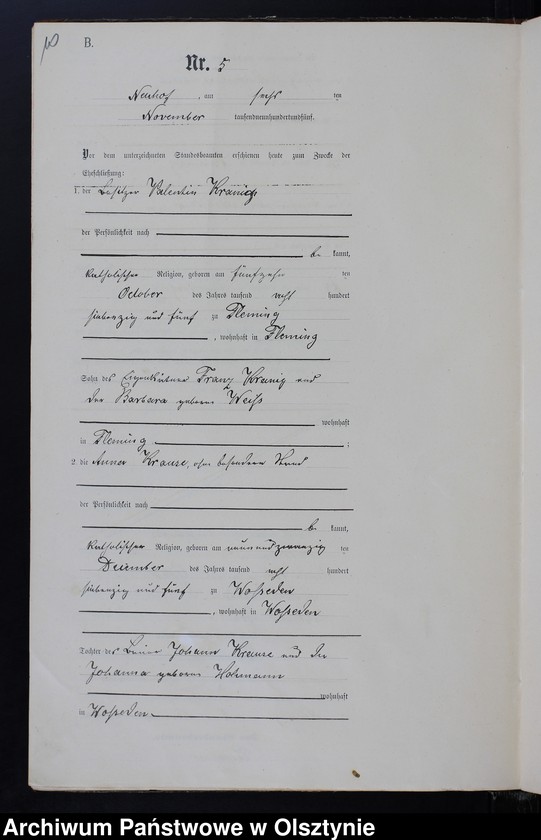 B.
Nr. 5
Neuhof, am sechs ten
November tausendneunhundertundfünf.
Vor dem unterzeichneten Standesbeamten erschienen heute zum Zwecke der
Eheschließung:
1. der Besitzer Valentin Kranig
der Persönlichkeit nach
be kannt,
katholischer Religion, geboren am fünfzehn ten
October des Jahres tausend acht hundert
siebenzig und fünf zu Fleming
, wohnhaft in Fleming
Sohn des Eigenkätner Franz Kranig und
der Barbara geborene Weiss
wohnhaft
in Fleming ;
2. die Anna Krause, ohne besonderen Stand
der Persönlichkeit nach
be kannt,
katholischer Religion, geboren am neunundzwanzig ten
December des Jahres tausend acht hundert
siebenzig und fünf zu Wosseden
, wohnhaft in Wosseden
Tochter des Johann Krause und der
Johanna geborene Hohmann
wohnhaft
in Wosseden
Archiwum Państwowe w Olsztynie